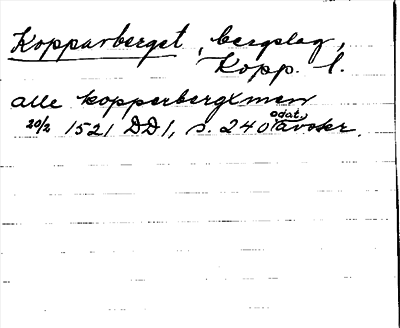 Kopparberget, bergslag,
Kopp. l.
alle kopperbergxmen
20/2 1521 DD1, s. 240 odat. avskr.